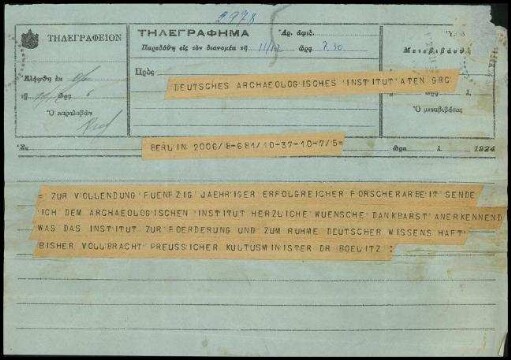 ΤΗΛΕΓΡΑΦΕΙΟΝ
ΤΗΛΕΓΡΑΦΗΜΑ
Παρεδόθη εἰς τὸν διανομέα τῇ 11/12 ὥρᾳ 7.10
Μετεβιβάσθη
Ἐλήφθη ἐκ
Πρὸς
Ὁ παραλαβὼν
Ὁ μεταβιβάσας
DEUTSCHES ARCHAEOLOGISCHES INSTITUT ATEN GRC
Ἐκ
BERLIN 2006/8-681/10-37-10-7/5=
1924
= ZUR VOLLENDUNG FUENFZIG JAEHRIGER ERFOLGREICHER FORSCHERARBEIT SENDE
ICH DEM ARCHAEOLOGISCHEN INSTITUT HERZLICHE WUENSCHE DANKBARST ANERKENNEND
WAS DAS INSTITUT ZUR FOERDERUNG UND ZUM RUHME DEUTSCHER WISSENSHAFT
BISHER VOLLBRACHT PREUSSICHER KULTUSMINISTER DR BOELITZ :